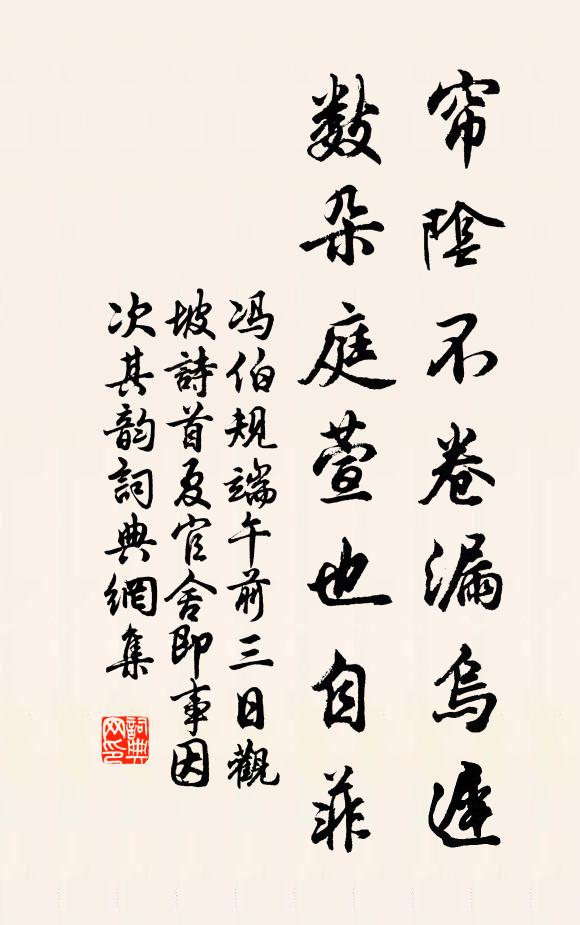 帘陰不卷漏烏遲
數朵庭萱也自菲
冯伯规端午前三日觀
坡詩首夏官舍即事因
次其韵詞典網集
詞典網印